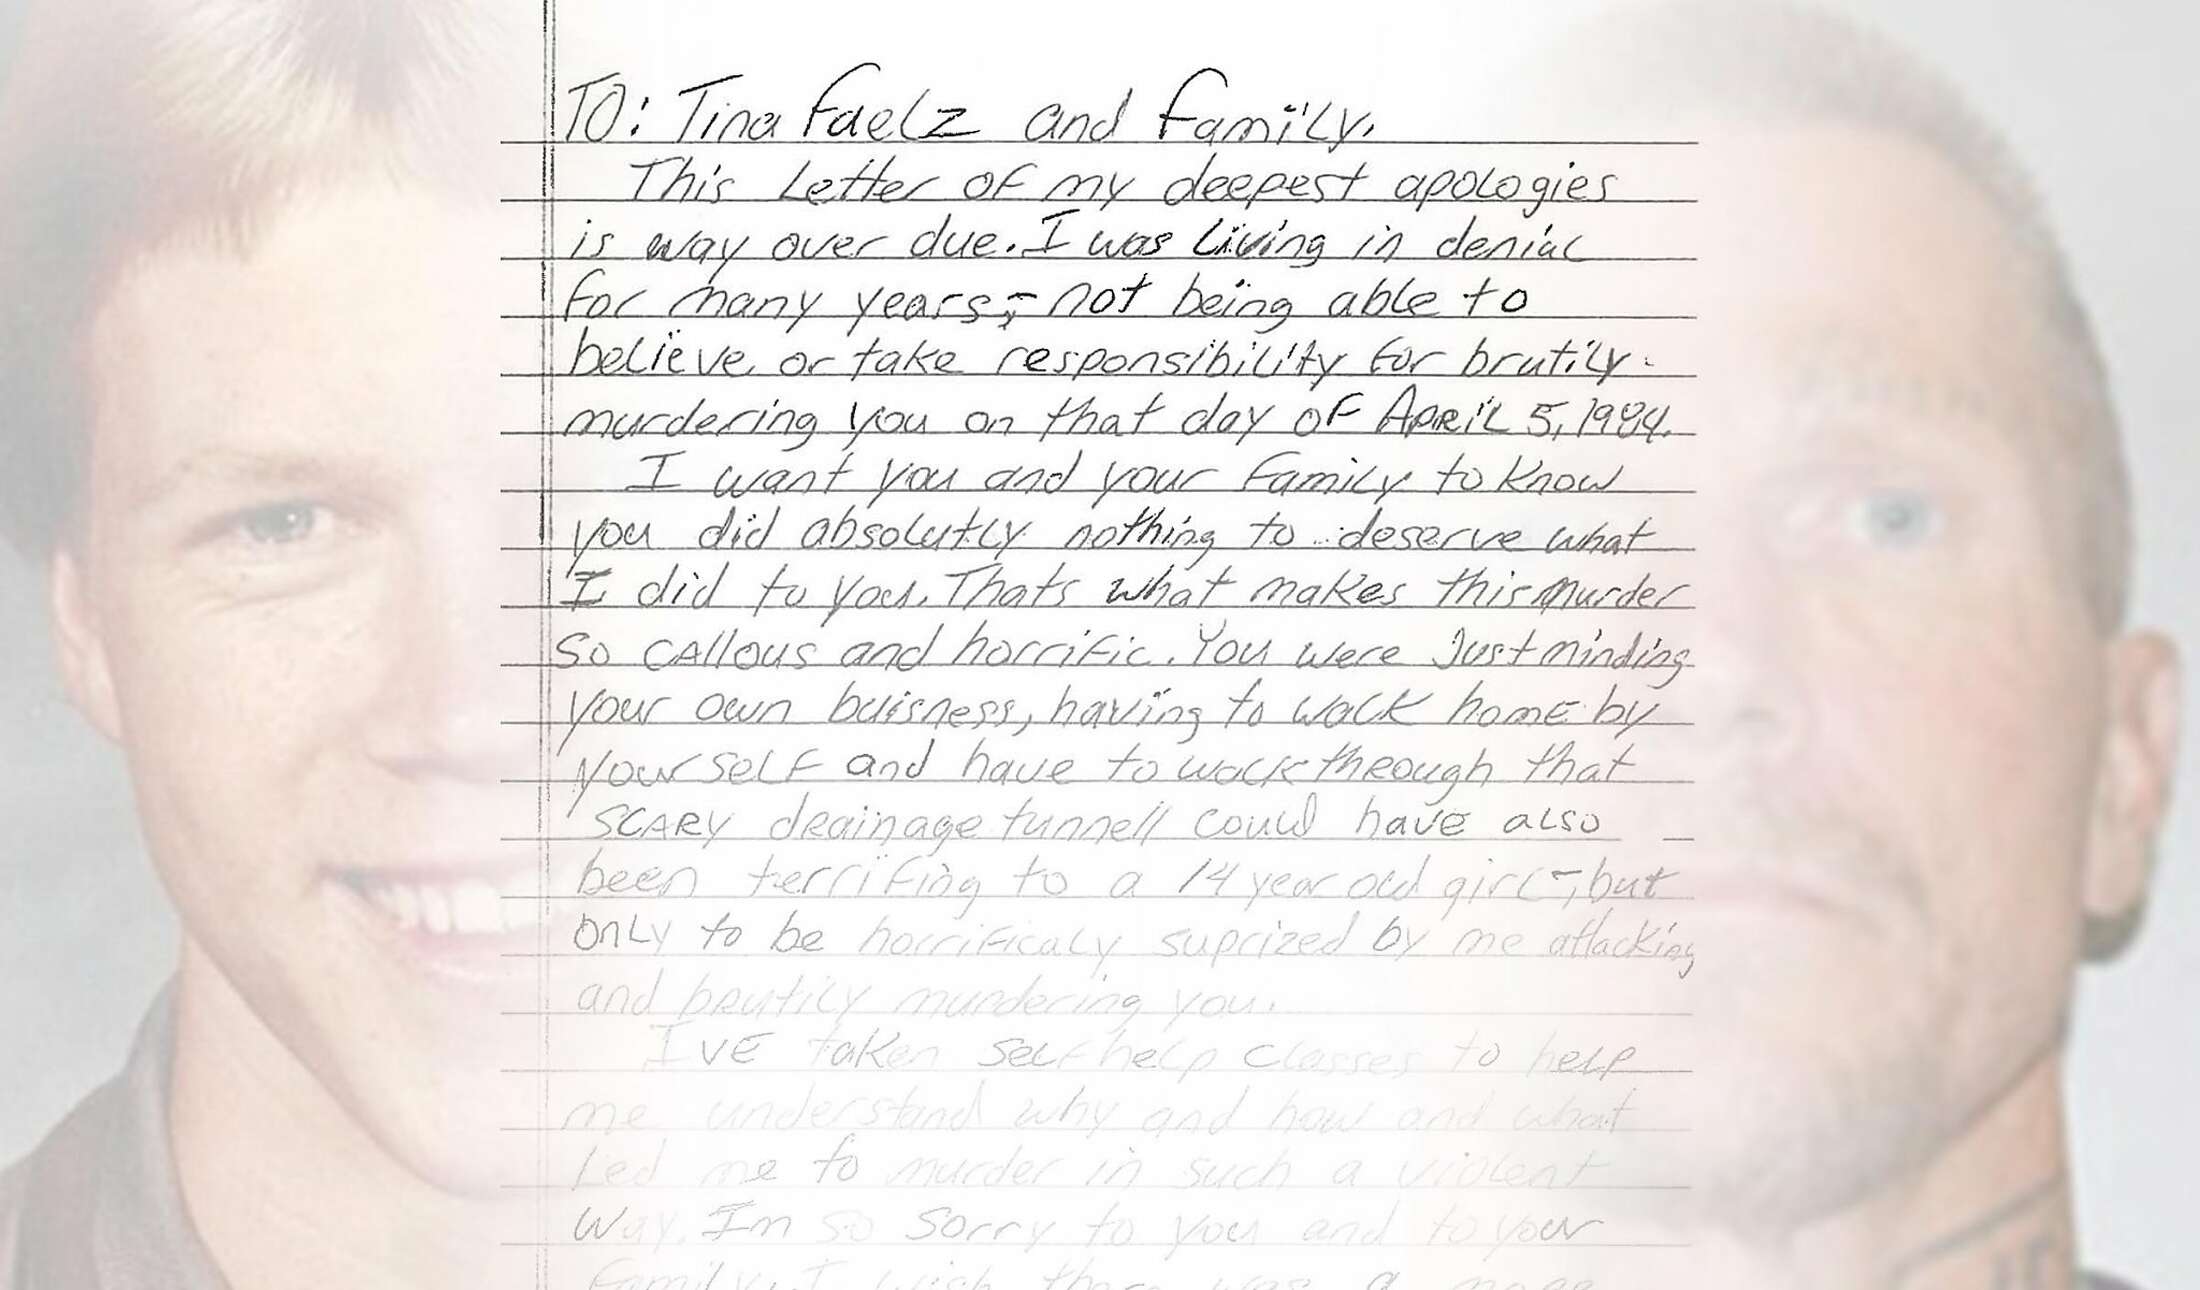 TO: Tina Faelz and Family.
This Letter of my deepest apologies
is way over due. I was Living in denial
for many years,- not being able to
believe or take responsibility for brutily
murdering you on that day of April 5, 1984.
I want you and your Family to know
you did absolutly nothing to deserve what
I did to you. Thats what makes this murder
so callous and horrific. You were Just minding
your own buisness, having to walk home by
yourself and have to walk through that
SCARY drainage tunnell could have also
been terrifing to a 14 year old girl-, but
only to be horrificaly suprized by me attacking
and brutily murdering you.
I've taken self help classes to help
me understand why and how and what
led me to murder in such a violent
way. Im so sorry to you and to your
family. I wish there was a more